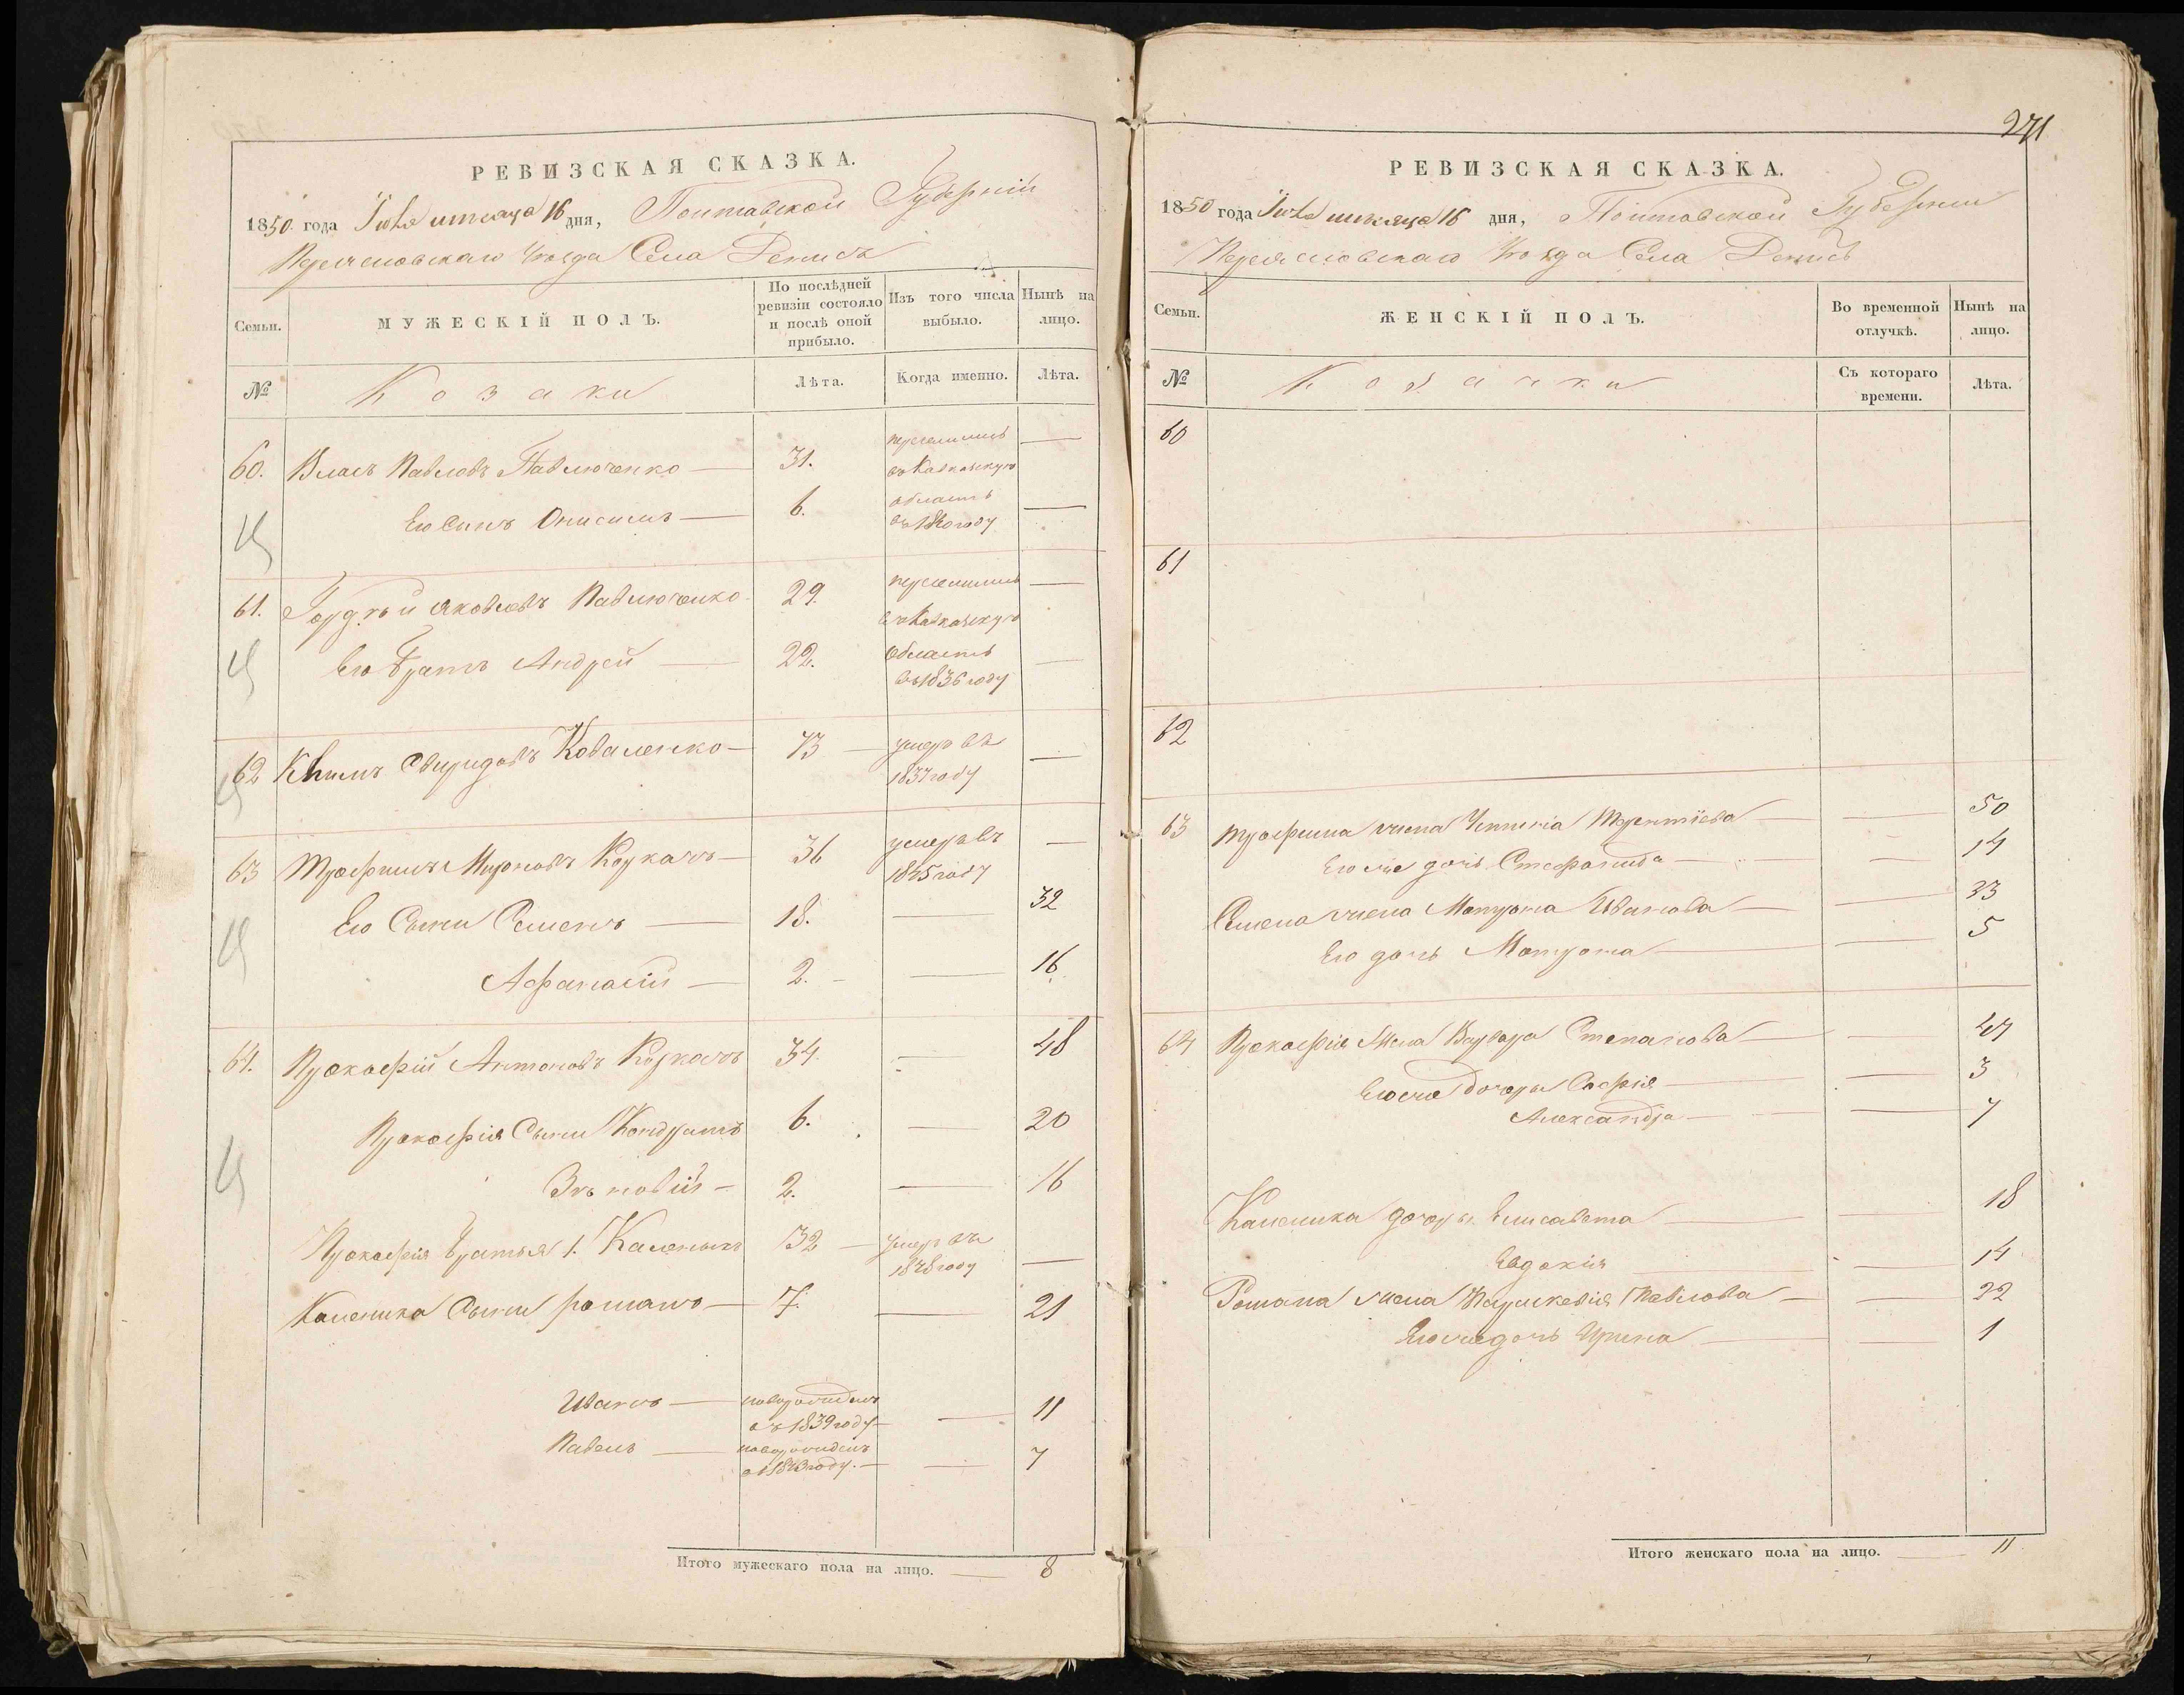 РЕВИЗСКАЯ СКАЗКА.
1850 года Іюля месяца 16 дня, Полтавской Губерніи
Переясловскаго Уезда Села Денисъ
Семьи.
МУЖЕСКІЙ ПОЛЪ.
По послѣдней ревизіи состояло и послѣ оной прибыло.
Изъ того числа выбыло.
Нынѣ на лицо.
№
Козаки
Лѣта.
Когда именно.
Лѣта.
60. Власъ Павловъ Павлюченко 31. переселились
въ Кавказскую
Его Сынъ Онисимъ 6. область
въ 1840 году
61. Гордѣй Яковлевъ Павлюченко 29. переселились
въ Кавказскую
Его Братъ Андрей 22. область
въ 1836 году
62 Свиридовъ Коваленко 73 умеръ въ
1837 году
63 Трофимъ Мироновъ Коркачъ 36 умеръ въ
1845 году
Его Сыни Семенъ 18. 32
Афанасій 2. 16.
64. Прокофій Антоновъ Коркачъ 34. 48
Прокофія Сыни Кондратъ 6. 20
Зѣновій 2. 16
Прокофія Братья 1. Каленикъ 32 умеръ въ
1848 году
Каленика Сыни романъ 7. 21
Иванъ новорожденъ
въ 1839 году 11
Павелъ новорожденъ
въ 1843 году. 7
Итого мужескаго пола на лицо. 8
271
РЕВИЗСКАЯ СКАЗКА.
1850 года Іюля месяца 16 дня, Полтавской Губерніи
Переясловскаго Уезда Села Денисъ
Семьи.
ЖЕНСКІЙ ПОЛЪ.
Во временной отлучкѣ.
Нынѣ на лицо.
№
Козачки
Съ котораго времени.
Лѣта.
60
61
62
63 Трофима жена Терентіева 50
Его же дочь Стефанида 14
Семена жена Мотрона Иванова 33
Его дочь Мотрона 5
64 Прокофія Жена Варвара Степанова 47
Его же дочери Софія 3
Александра 7
Каленика дочери Елисавета 18
Евдокія 14
Романа жена Параскевія Павлова 22
Его же дочь Ирина 1
Итого женскаго пола на лицо. 11